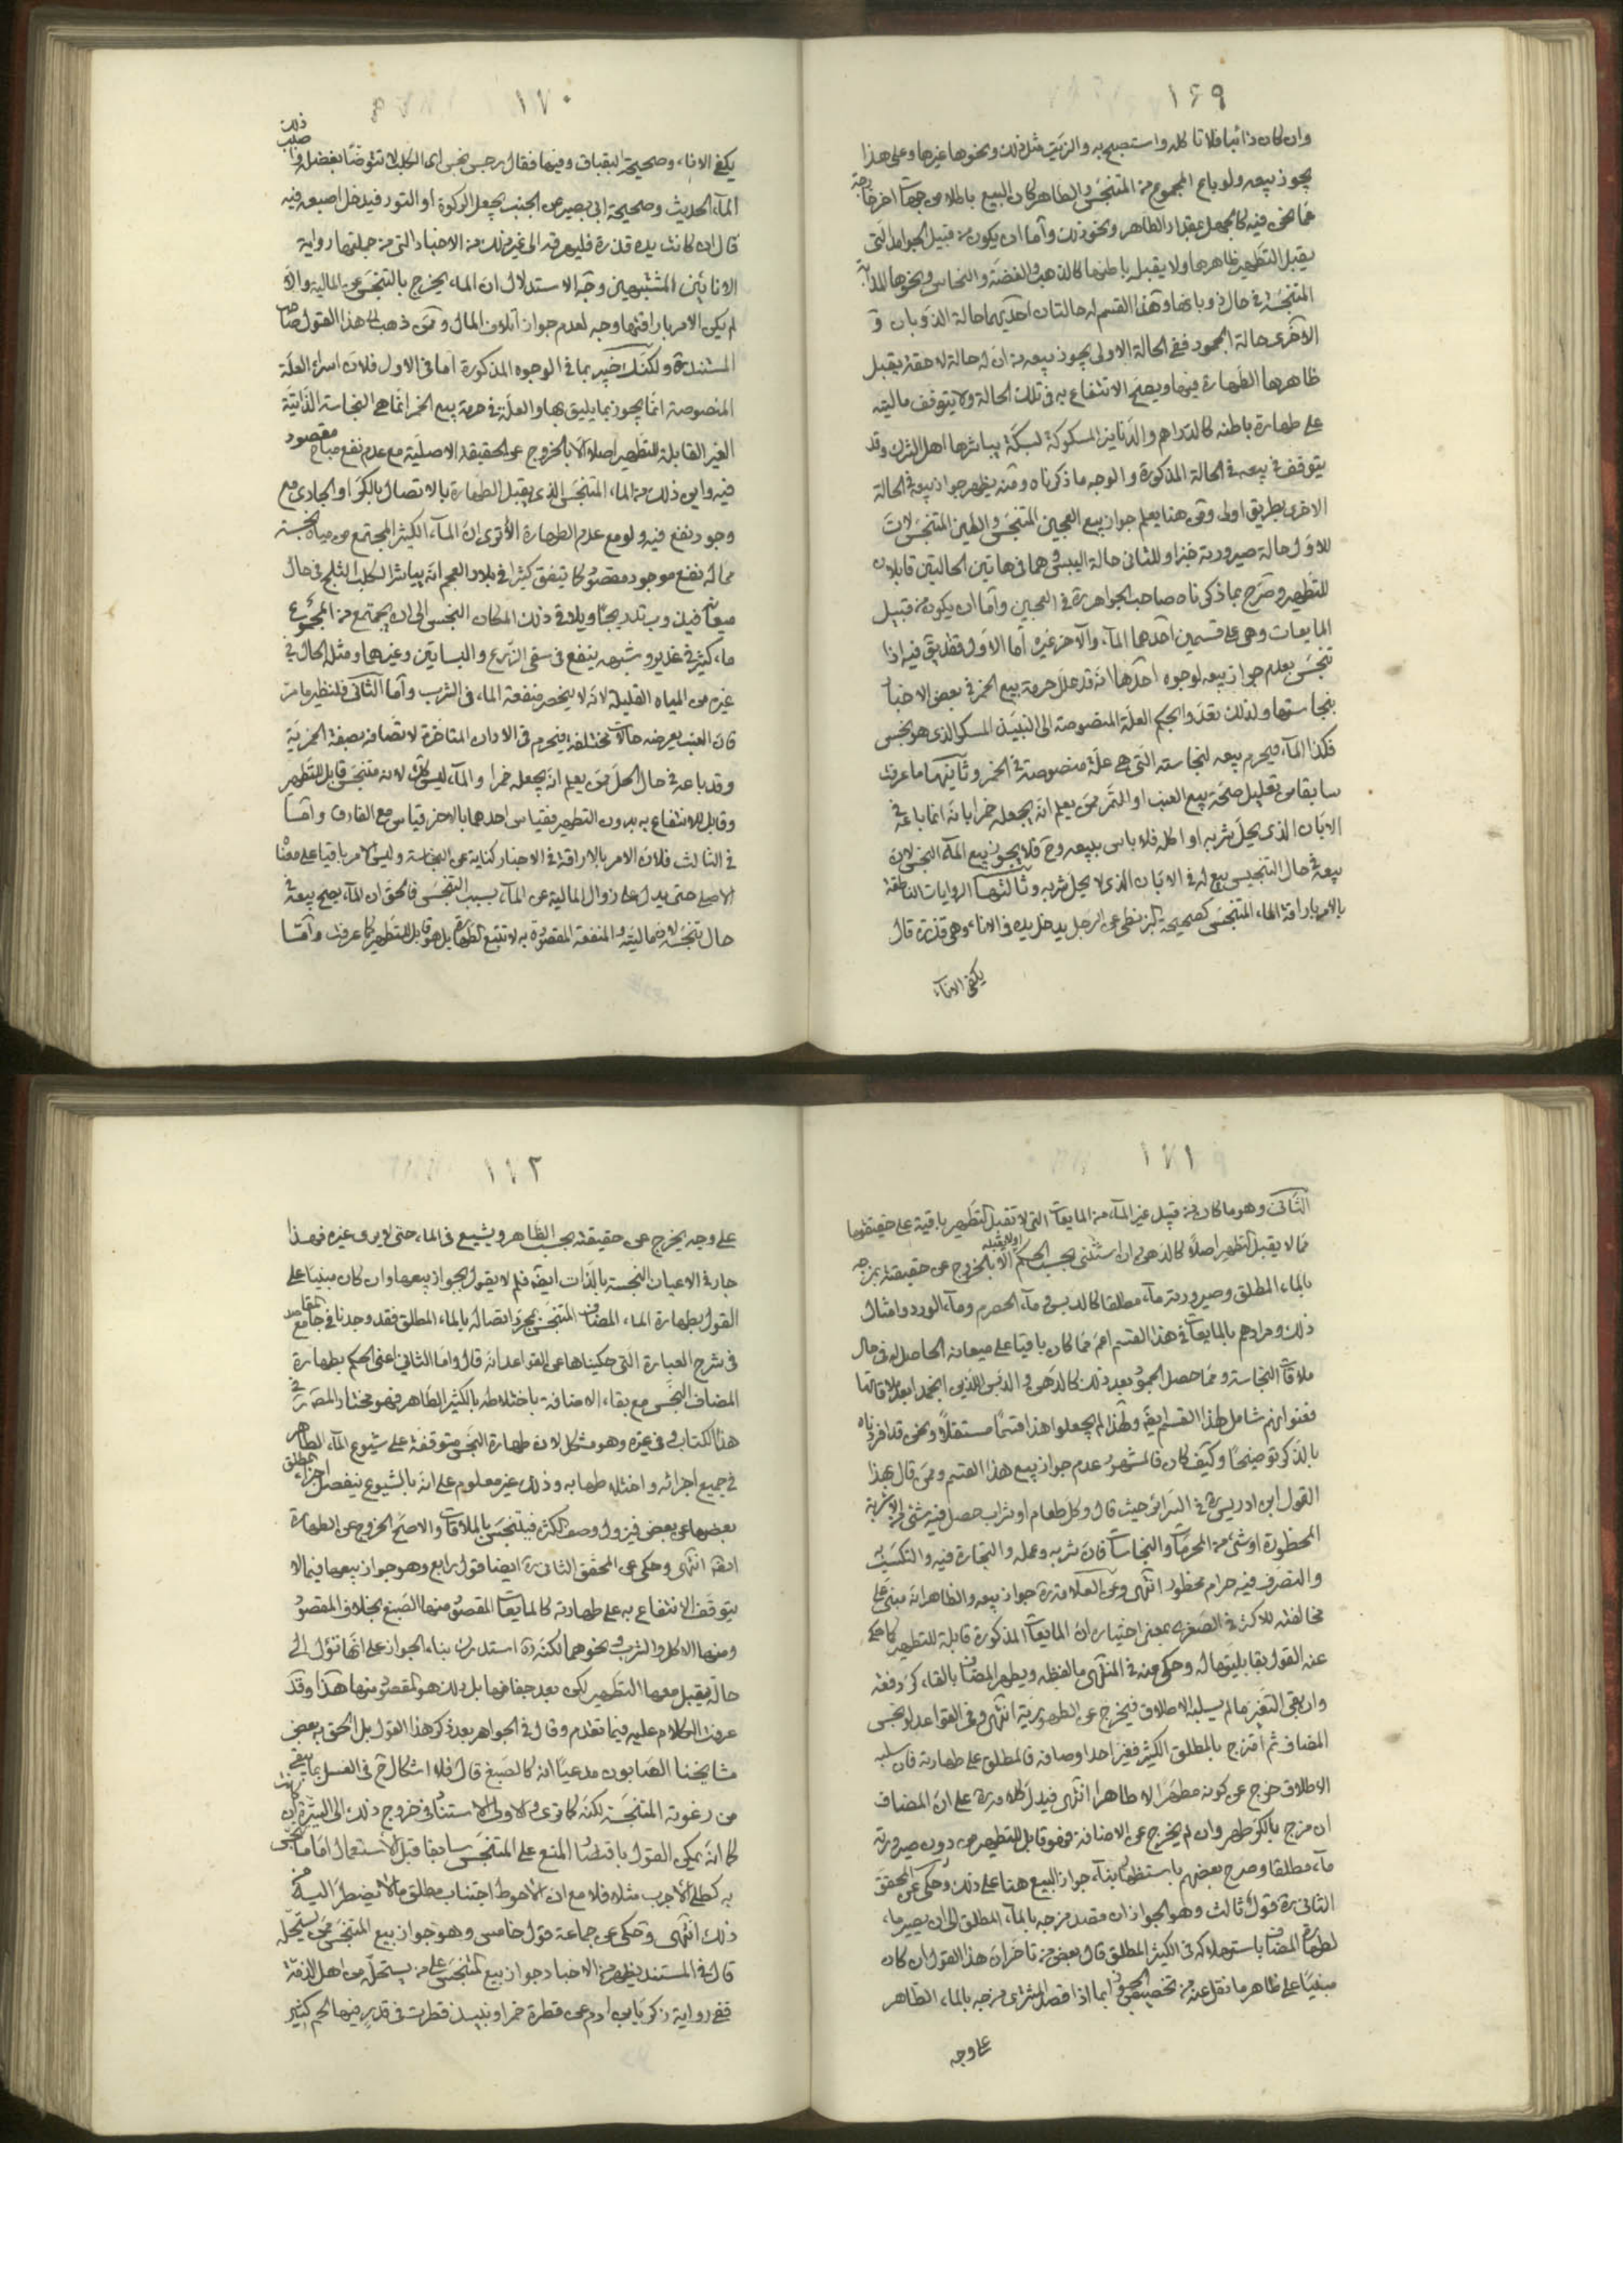 ١٦٩
وان كان ذائبا فلا تاكله واستصبح به والزيت مثل ذلك ونحوها غيرها وعلى هذا
يجوز بيعه ولو باع المجموع من المتنجس والطاهر كان البيع باطلا من جهات اخر خارجة
عما نحن فيه كالجهل بمقدار الطاهر ونحو ذلك واما ان يكون من قبيل الجوامد التى
يقبل التطهير ظاهرها ولا يقبله باطنها كالذهب والفضة والنحاس ونحوها المذابة
المتنجسة فى حال ذوبانها وهذا القسم له حالتان احديهما حالة الذوبان و
الاخرى حالة الجمود ففى الحالة الاولى يجوز بيعه من ان له حالة لاحقة يقبل
ظاهرها الطهارة فيها ويصح الانتفاع به فى تلك الحالة ولا يتوقف ماليته
على طهارة باطنه كالدراهم والدنانير المسكوكة لسكة يباشرها اهل الشرك وقد
يتوقف فى بيعه فى الحالة المذكورة والوجه ما ذكرناه ومنه يظهر جواز بيعه فى الحالة
الاخرى بطريق اولى ومن هنا يعلم جواز بيع العجين المتنجس والطين المتنجس لان
للاول حالة صيرورته خبزا وللثانى حالة اليبس وهما فى هاتين الحالتين قابلان
للتطهير وصرح بما ذكرناه صاحب الجواهر ره فى العجين واما ان يكون من قبيل
المايعات وهى على قسمين احدهما الماء والاخر غيره اما الاول فقد يق فيه اذا
تنجس بعدم جواز بيعه لوجوه احدها انه قد علل حرمة بيع الخمر فى بعض الاخبار
بنجاستها ولذلك تعدوا بحكم العلة المنصوصة الى النبيذ المسكر الذى هو نجس
فكذا الماء فيحرم بيعه لنجاسته التى هى علة منصوصة فى الخمر وثانيهما ما عرفت
سابقا من تعليل صحة بيع العنب او التمر ممن يعلم انه يجعله خمرا بانه انما باعه فى
الابان الذى يحل شربه او اكله فلا باس ببيعه وح فلا يجوز بيع الماء النجس لان
بيعه فى حال التنجيس بيع له فى الابان الذى لا يحل شربه وثالثها الروايات الناطقة
بالامر باراقة الماء المتنجس كصحيحة البزنطى عن الرجل يدخل يده فى الاناء وهى قذرة قال
يكفى الاناء
١٧٠
يكفى الاناء وصحيحة البقباق وفيها فقال رجس نجس اى الكلب لا تتوضا بفضله واصبب ذلك
الماء الحديث وصحيحة ابى بصير عن الجنب يجعل الركوة او التور فيدخل اصبعه فيه
قال ان كانت يده قذرة فليهرقه الى غير ذلك من الاخبار التى من جملتها رواية
الانائين المشتبهين وجه الاستدلال ان الماء يخرج بالتنجس عن المالية والا
لم يكن الامر باراقتها وجه لعدم جواز اتلاف المال وممن ذهب الى هذا القول صاحب
المستند ره ولكنك خبير بما فى الوجوه المذكورة اما فى الاول فلان اسراء العلة
المنصوصة انما يجوز بما يليق بها والعلة فى حرمة بيع الخمر انما هى النجاسة الذاتية
الغير القابلة للتطهير اصلا الا بالخروج عن الحقيقة الاصلية مع عدم نفع مباح مقصود
فيه واين ذلك من الماء المتنجس الذى يقبل الطهارة بالاتصال بالكر او الجارى مع
وجود نفع فيه ولو مع عدم الطهارة الا ترى ان الماء الكثير المجتمع من مياه نجسة
مما له نفع موجود مقصود كما يتفق كثيرا فى بلاد العجم انه يباشر الكلب الثلج فى حال
ميعانه فيذوب تدريجا ويلاقى ذلك المكان النجس الى ان يجتمع من المجموع
ماء كثير فى غدير وشبهه ينفع فى سقى الزرع والبساتين وغيرهما ومثله الحال فى
غيره من المياه القليلة لانه لا ينحصر منفعة الماء فى الشرب واما الثانى فلنظير ما مر
فان العنب يعرضه حالات مختلفة فيحرم فى الاوان المتاخرة لاتصافه بصفة الخمرية
وقد باعه فى حال الحل ممن يعلم انه يجعله خمرا والماء ليس كك لانه متنجس قابل للتطهير
وقابل للانتفاع به بدون التطهير فقياس احدهما بالاخر قياس مع الفارق واما
فى الثالث فلان الامر بالاراقة فى الاخبار كناية عن النجاسة وليس الامر باقيا على معناه
الاصلى حتى يدل على زوال المالية عن الماء بسبب التنجس فالحق ان الماء يصح بيعه فى
حال تنجسه لان ماليته والمنفعة المقصودة به لا تتبع الطهارة بل هو قابل للتطهير كما عرفت واما
١٧١
الثانى وهو ما كان من قبيل غير الماء من المايعات التى لا تقبل التطهير باقية على حقيقتها
مما لا يقبل التطهير اصلا كالدهن وان استثنى بحسب الحكم او لا يقبله الا بالخروج عن حقيقته بمزجه
بالماء المطلق وصيرورته ماء مطلقا كالدبس وماء الحصرم وماء الورد وامثال
ذلك ومرادهم بالمايعات فى هذا القسم اعم مما كان باقيا على ميعانه الحاصل له فى حال
ملاقات النجاسة ومما حصل الجمود بعد ذلك كالدهن والدبس اللذين انجمدا بعد ملاقاتها
فعنوانهم شامل لهذا القسم ايض ولهذا لم يجعلوا هذا قسما مستقلا ونحن قد افردناه
بالذكر توضيحا وكيف كان فالمشهور عدم جواز بيع هذا القسم وممن قال بهذا
القول ابن ادريس ره فى السرائر حيث قال وكل طعام او شراب حصل فيه شئ من الاشربة
المحظورة او شئ من المحرمات والنجاسات فان شربه وعمله والتجارة فيه والتكسب به
والتصرف فيه حرام محظور انتهى وعن العلامة ره جواز بيعه والظاهر انه مبنى على
مخالفته للاكثر فى الصغرى بمعنى اختياره ان المايعات المذكورة قابلة للتطهير كما حكى
عنه القول بقابليتها له وحكى عنه فى المنتهى ما لفظه ويطهر المضاف بالقاء كر دفعة
وان بقى التغير ما لم يسلبه الاطلاق فيخرج عن الطهورية انتهى وفى القواعد لو نجس
المضاف ثم امتزج بالمطلق الكثير فغير احد اوصافه فالمطلق على طهارته فان سلبه
الاطلاق خرج عن كونه مطهرا لا طاهرا انتهى فيدل كلامه ره على ان المضاف
ان مزج بالكر طهر وان لم يخرج عن الاضافة فهو قابل للتطهير من دون صيرورته
ماء مطلقا وصرح بعضهم باستظهار بناء جواز البيع هنا على ذلك وحكى عن المحقق
الثانى ره قول ثالث وهو الجواز ان قصد مزجه بالماء المطلق الى ان يصير ماء
لطهارة المضاف باستهلاكه فى الكثير المطلق قال بعض من تاخر ان هذا القول ان كان
مبنيا على ظاهر ما نقل عنه من تخصيص الجواز بما اذا قصد المشترى مزجه بالماء الطاهر
على وجه
١٧٢
على وجه يخرج عن حقيقته بحسب الظاهر ويشيع فى الماء حتى لا يرى غيره فهذا
جار فى الاعيان النجسة بالذات ايض فلم لا يقول بجواز بيعها وان كان مبنيا على
القول بطهارة الماء المضاف المتنجس بمجرد اتصاله بالماء المطلق فقد وجدنا فى جامع المقاصد
فى شرح العبارة التى حكيناها عن القواعد انه قال واما الثانى اعنى الحكم بطهارة
المضاف النجس مع بقاء الاضافة باختلاطه بالكثير الطاهر فهو مختار المصنف فى
هذا الكتاب وفى غيره وهو مشكل لان طهارة النجس متوقفة على شيوع الماء الطاهر المطلق
فى جميع اجزائه واختلاطها به وذلك غير معلوم على انه بالشيوع ينفصل اجزاء
بعضها عن بعض فيزول وصف الكثرة فيتنجس بالملاقات والاصح الخروج عن الطهارة
ايض انتهى وحكى عن المحقق الثانى ره ايضا قول رابع وهو جواز بيعها فيما لا
يتوقف الانتفاع به على طهارته كالمايعات المقصود منها الصبغ بخلاف المقصود
منها الاكل والشرب ونحوهما لكنه ره استدرك بناء الجواز على انها تؤل الى
حالة يقبل معها التطهير لكن بعد جفافها بل ذلك هو المقصود منها هذا وقد
عرفت الكلام عليه فيما تقدم وقال فى الجواهر بعد ذكر هذا القول بل الحق به بعض
مشايخنا الصابون مدعيا انه كالصبغ قال فلا اشكال ح فى الغسل بما يبقى
من رغوته المتنجسة لكنه كما ترى والاولى الاستناد فى خروج ذلك الى السيرة ان كانت
كما انه يمكن القول باقتضاء المنع على المتنجس سابقا قبل الاستعمال اما ما تنجس
به كطلى الاجرب مثلا فلا مع ان الاحوط اجتناب مطلق ما لا يضطر اليه من
ذلك انتهى وحكى عن جماعة قول خامس وهو جواز بيع المتنجس ممن يستحله
قال فى المستند يظهر من الاخبار جواز بيع المتنجس على من يستحله من اهل الذمة
ففى رواية زكريا بن ادم عن قطرة خمر او نبيذ قطرت فى قدر فيها لحم كثير